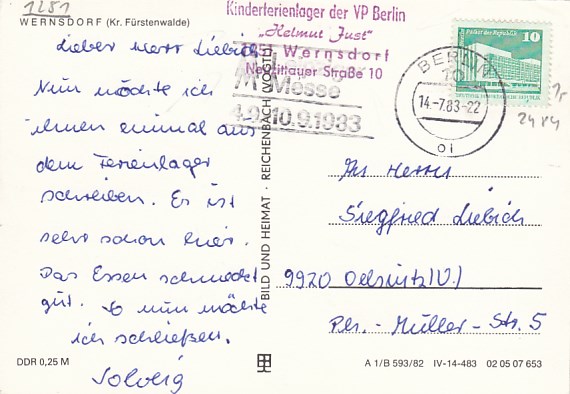 1251
WERNSDORF (Kr. Fürstenwalde)
Kinderferienlager der VP Berlin
„Helmut Just"
1251 Wernsdorf
Neu Zittauer Straße 10
MMesse
4.9.-10.9.1983
Palast der Republik
10
BERLIN
70
14.-7.83-22
ol
24 V4
Lieber Herr Liebich
Nun möchte ich
ihnen einmal aus
dem Ferienlager
schreiben. Es ist
sehr schön hier.
Das Essen schmeckt
gut. So nun möchte
ich schließen.
Solveig
BILD UND HEIMAT · REICHENBACH (VOGTL)
An Herrn
Siegfried Liebich
9920 Oelsnitz (V.)
Ph.-Müller-Str. 5
DDR 0,25 M
A 1/B 593/82 IV-14-483 02 05 07 653